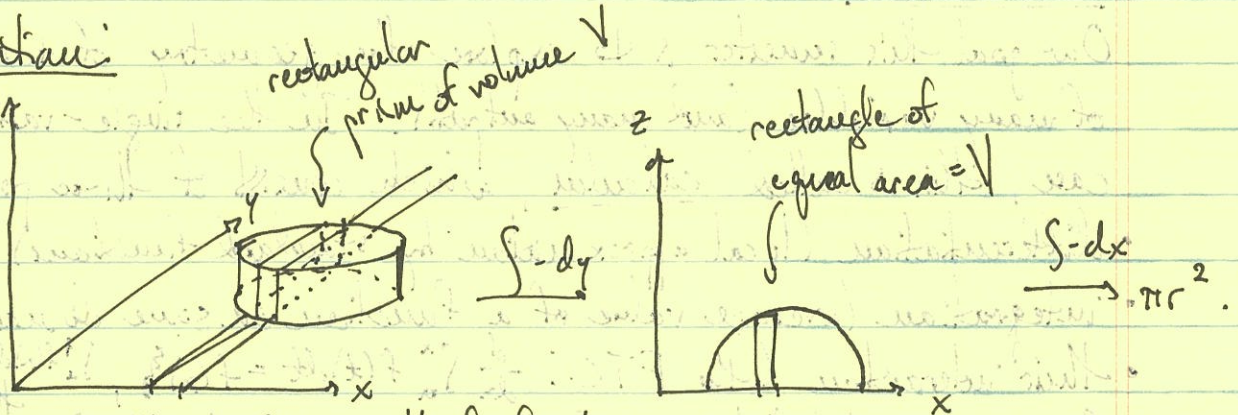 tion:
rectangular
prism of volume V
y
x
∫-dy
z
rectangle of
equal area = V
x
∫-dx
πr².